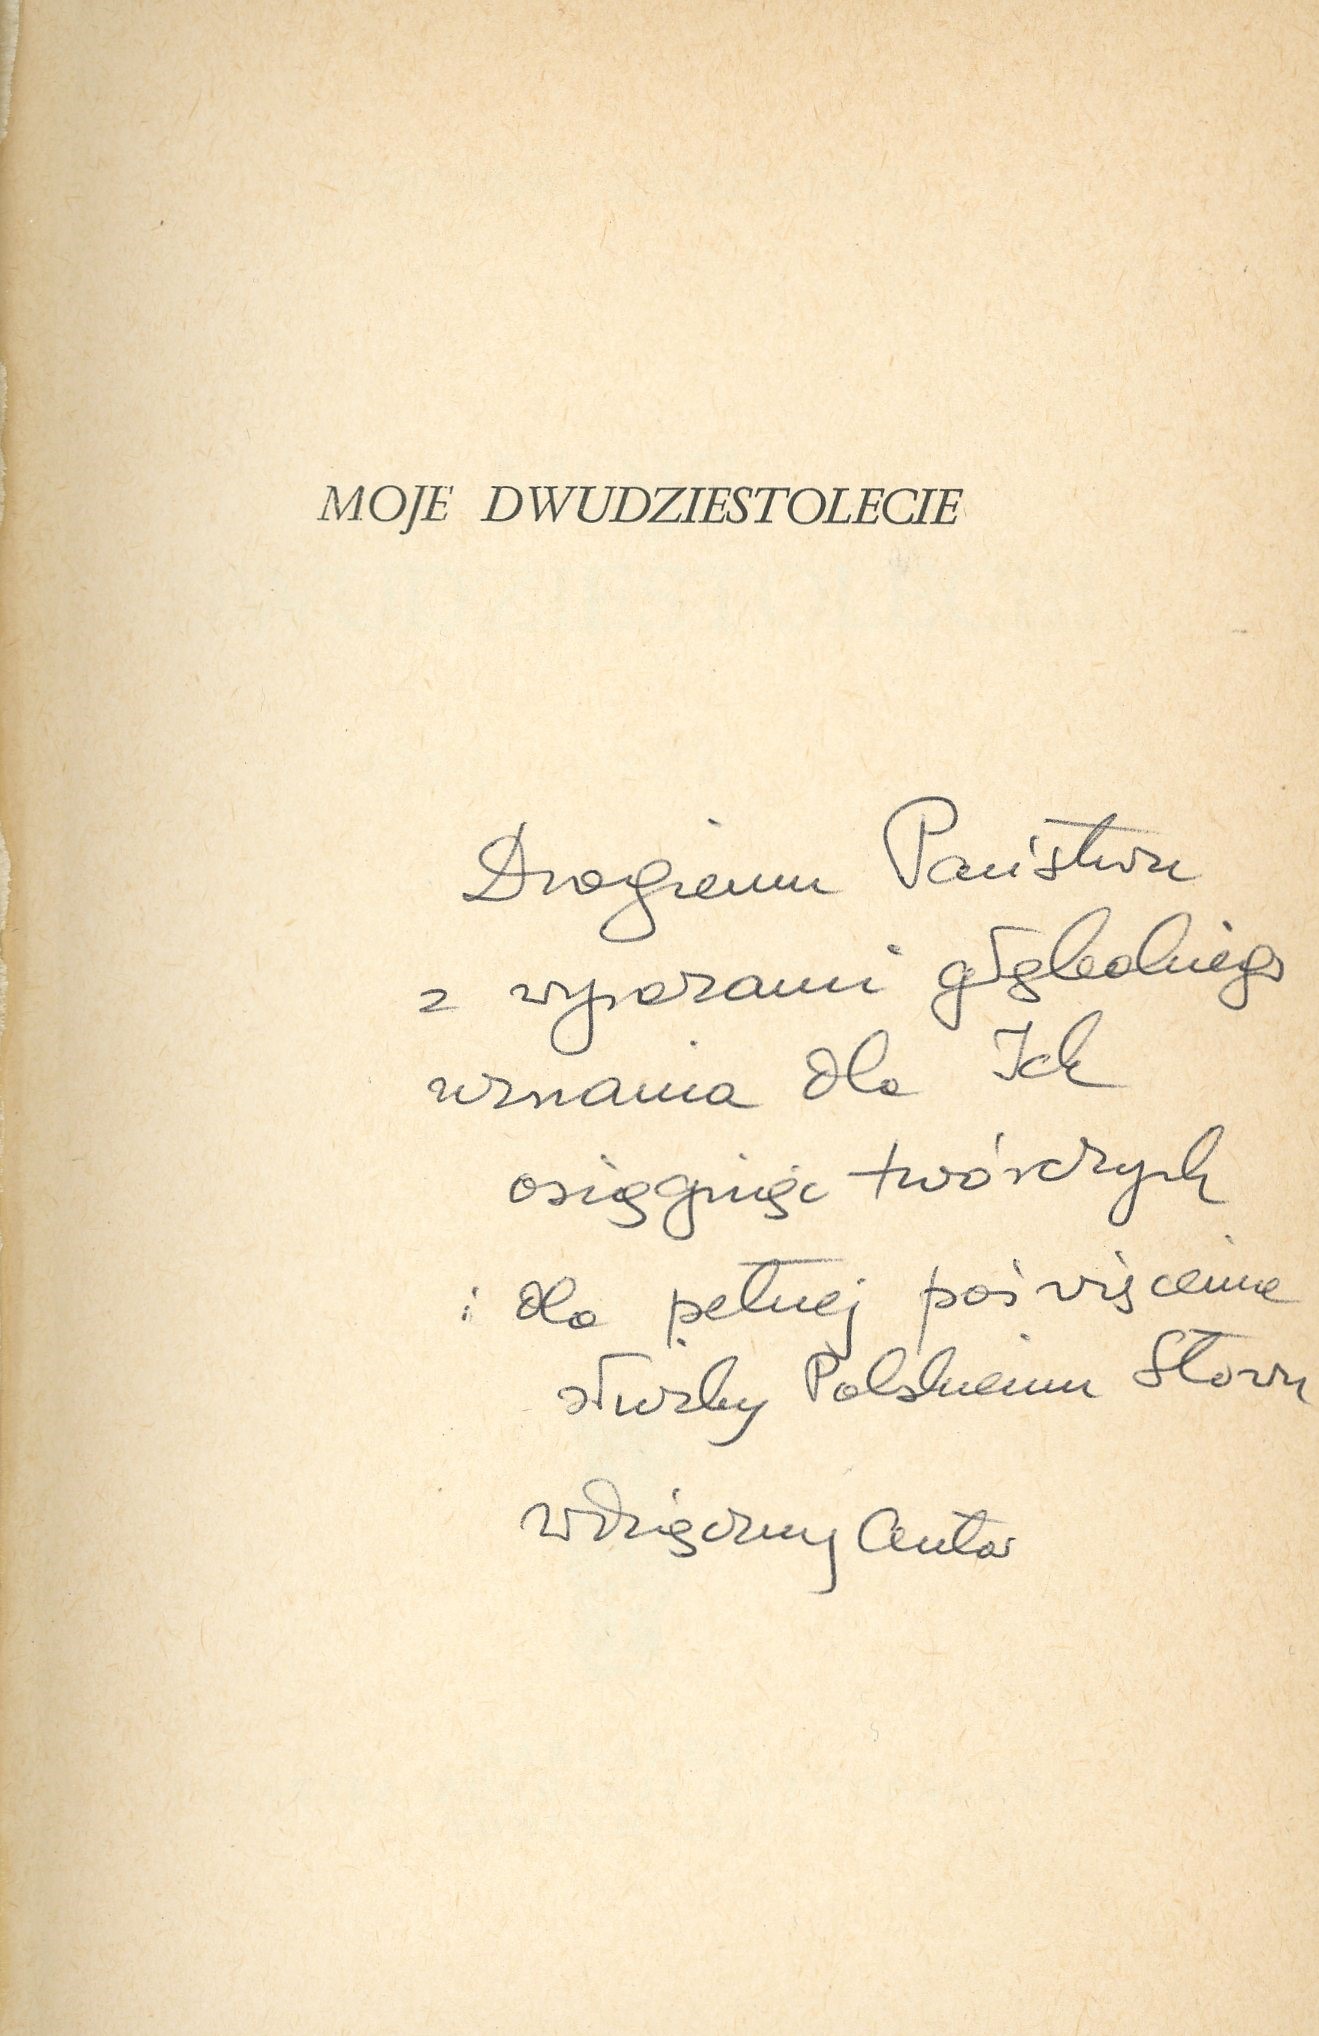 MOJE DWUDZIESTOLECIE
Drogiemu Państwu
z wyrazami głębokiego
uznania dla Ich
osiągnięć twórczych
i dla pełnej poświęcenia
służby Polskiemu Słowu
wdzięczny Autor